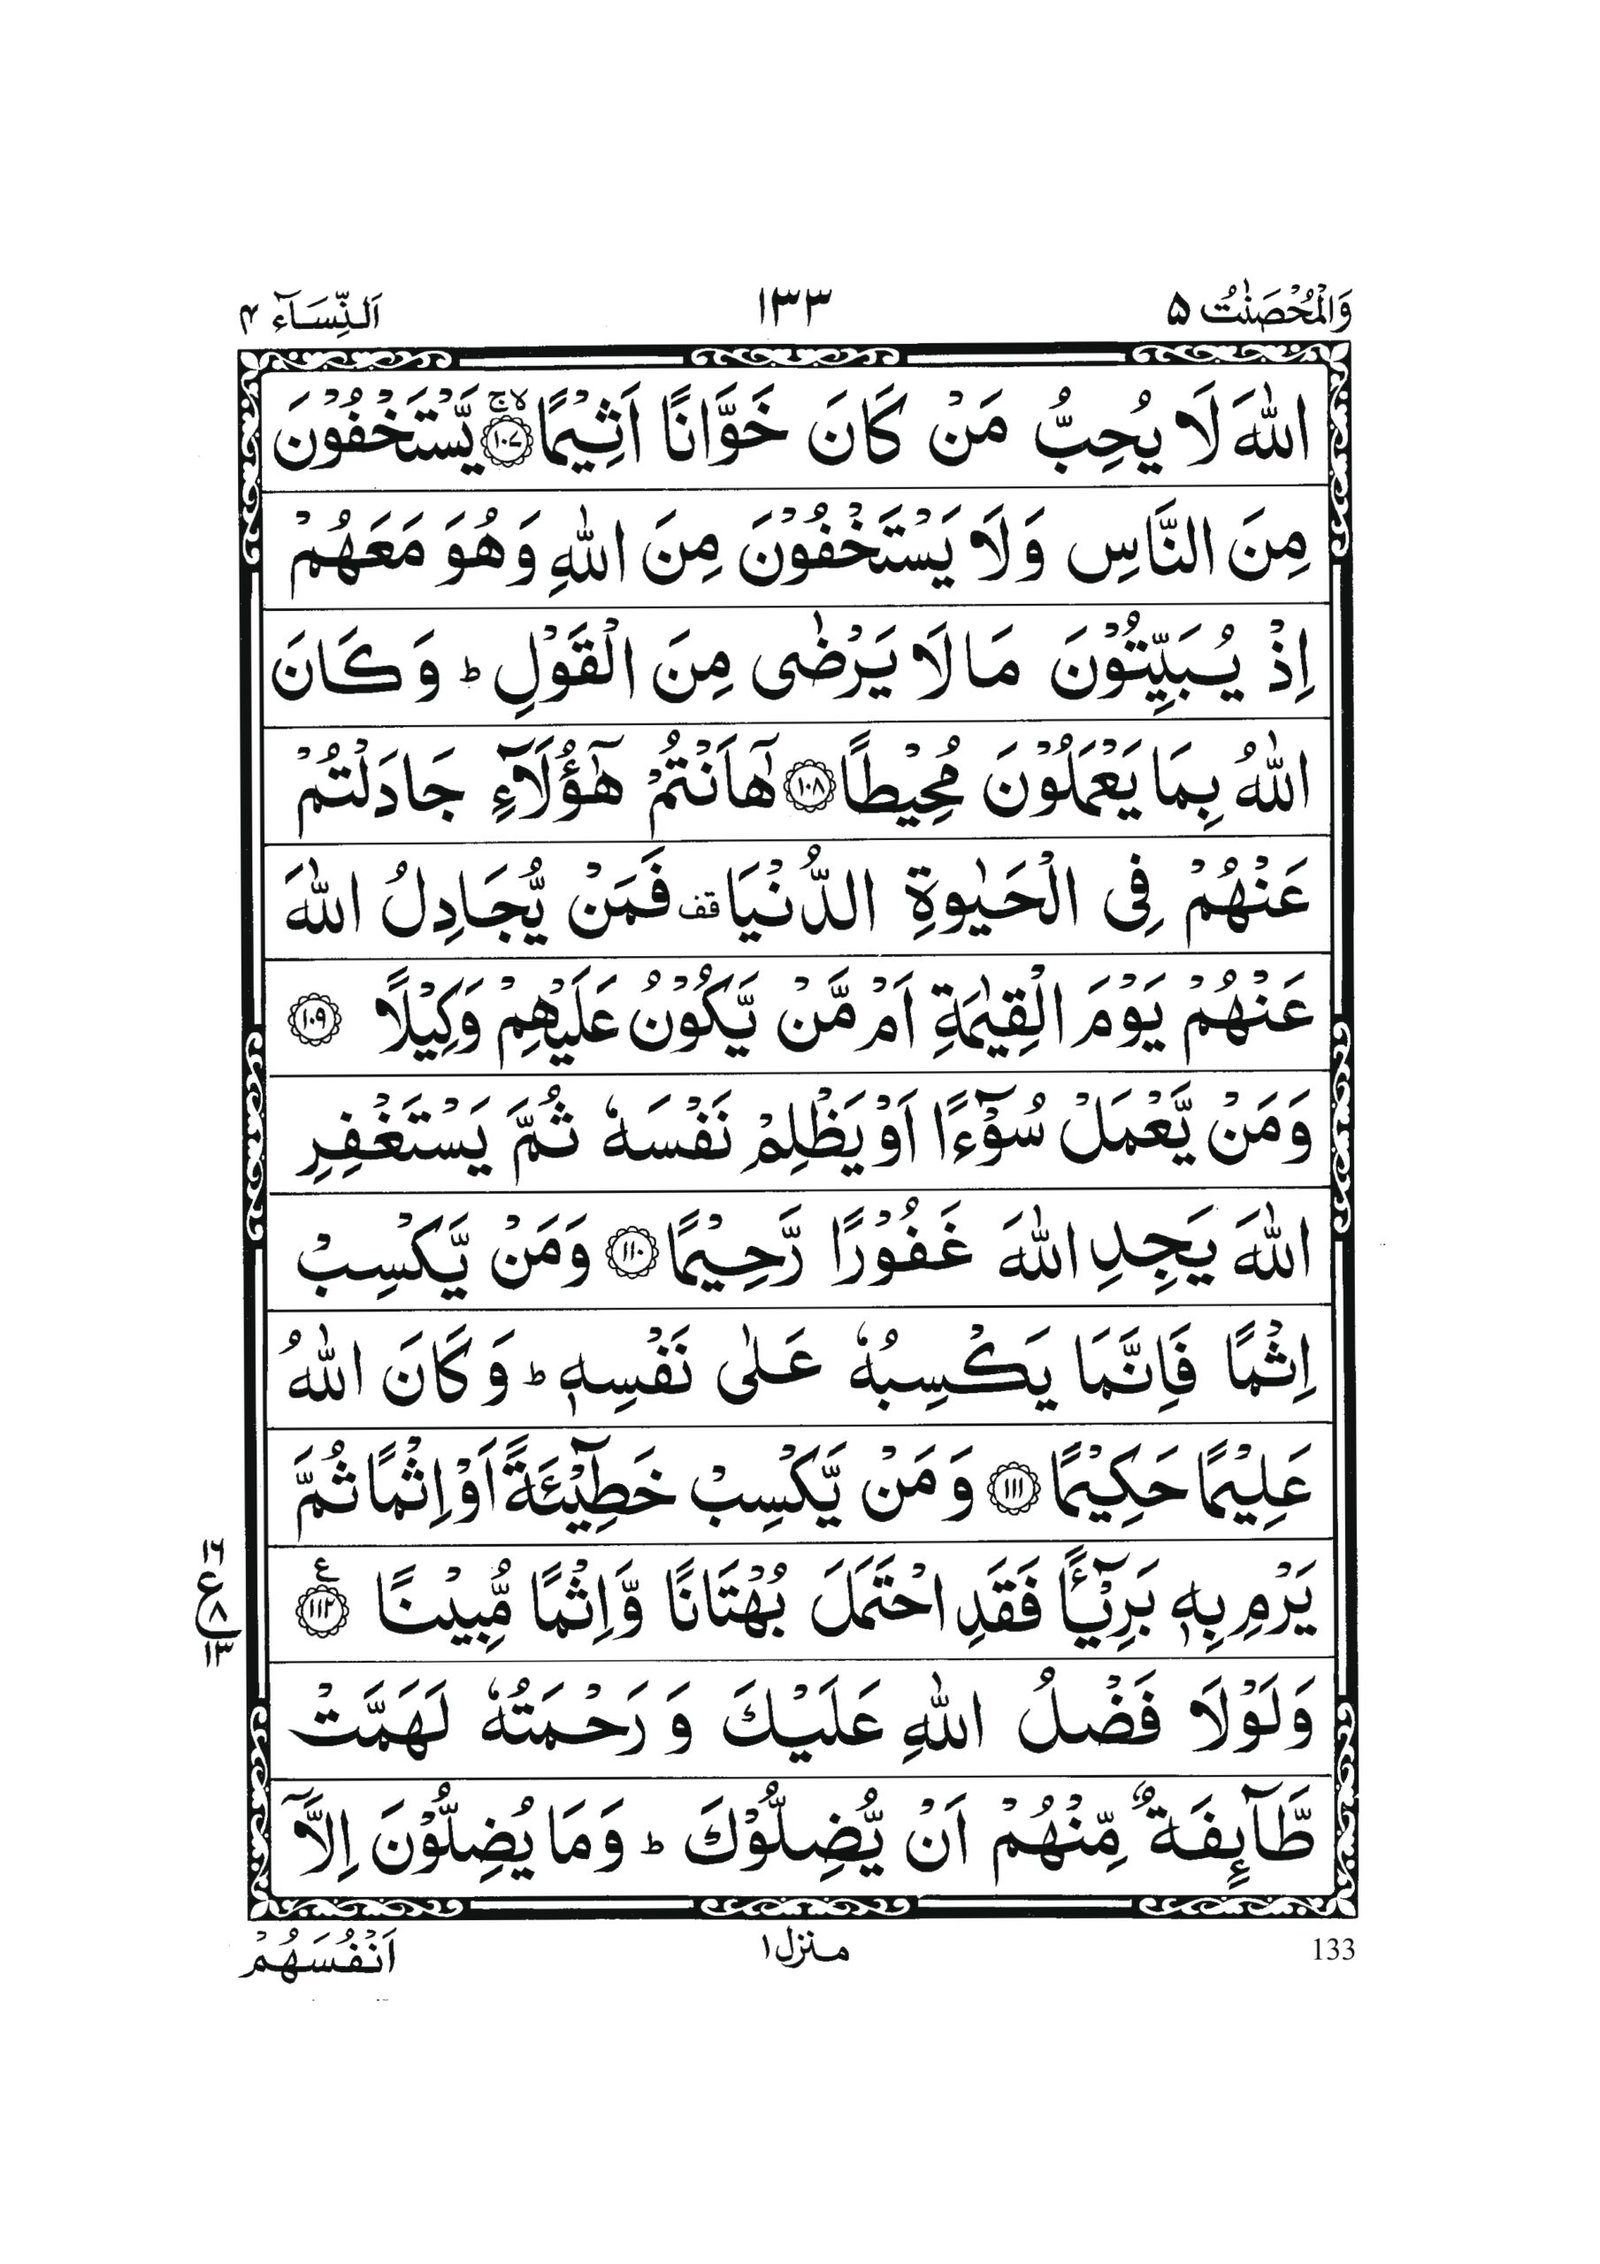 وَالْمُحْصَنٰتُ ۵ ١٣٣ اَلنِّسَآء ۴
اللّٰهَ لَا يُحِبُّ مَنْ كَانَ خَوَّانًا اَثِيْمًا ۙۚ ﴿۱۰۷﴾ يَّسْتَخْفُوْنَ
مِنَ النَّاسِ وَلَا يَسْتَخْفُوْنَ مِنَ اللّٰهِ وَهُوَ مَعَهُمْ
اِذْ يُبَيِّتُوْنَ مَا لَا يَرْضٰى مِنَ الْقَوْلِ ؕ وَكَانَ
اللّٰهُ بِمَا يَعْمَلُوْنَ مُحِيْطًا ﴿۱۰۸﴾ هٰۤاَنْتُمْ هٰۤؤُلَآءِ جَادَلْتُمْ
عَنْهُمْ فِى الْحَيٰوةِ الدُّنْيَا قف فَمَنْ يُّجَادِلُ اللّٰهَ
عَنْهُمْ يَوْمَ الْقِيٰمَةِ اَمْ مَّنْ يَّكُوْنُ عَلَيْهِمْ وَكِيْلًا ﴿۱۰۹﴾
وَمَنْ يَّعْمَلْ سُوْٓءًا اَوْ يَظْلِمْ نَفْسَهٗ ثُمَّ يَسْتَغْفِرِ
اللّٰهَ يَجِدِ اللّٰهَ غَفُوْرًا رَّحِيْمًا ﴿۱۱۰﴾ وَمَنْ يَّكْسِبْ
اِثْمًا فَاِنَّمَا يَكْسِبُهٗ عَلٰى نَفْسِهٖ ؕ وَكَانَ اللّٰهُ
عَلِيْمًا حَكِيْمًا ﴿۱۱۱﴾ وَمَنْ يَّكْسِبْ خَطِيْٓئَةً اَوْ اِثْمًا ثُمَّ
يَرْمِ بِهٖ بَرِيْٓـًٔا فَقَدِ احْتَمَلَ بُهْتَانًا وَّاِثْمًا مُّبِيْنًا ﴿۱۱۲﴾ ع
١٦ ع ٨ ١٣
وَلَوْلَا فَضْلُ اللّٰهِ عَلَيْكَ وَرَحْمَتُهٗ لَهَمَّتْ
طَّآئِفَةٌ مِّنْهُمْ اَنْ يُّضِلُّوْكَ ؕ وَمَا يُضِلُّوْنَ اِلَّاۤ
133 منزل ١ اَنْفُسَهُمْ